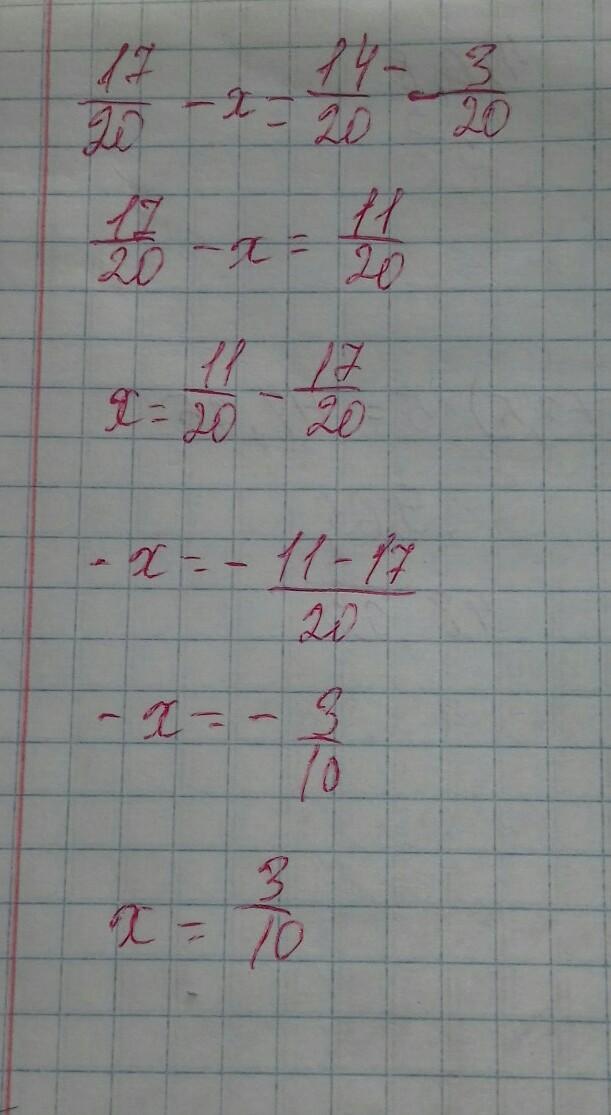 17/20 - x = 14/20 - 3/20
17/20 - x = 11/20
x = 11/20 - 17/20
- x = - 11 - 17/20
- x = - 3/10
x = 3/10